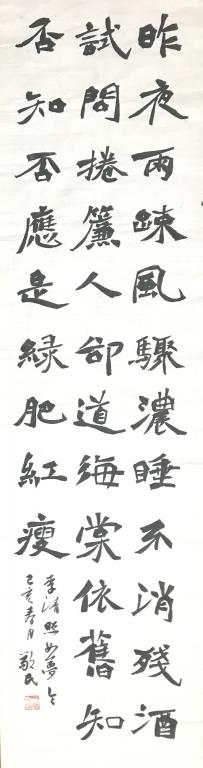 昨夜雨疎風驟濃睡不消殘酒
試問捲簾人卻道海棠依舊知
否知否應是綠肥紅瘦
李清照如夢令
己亥春月敬民